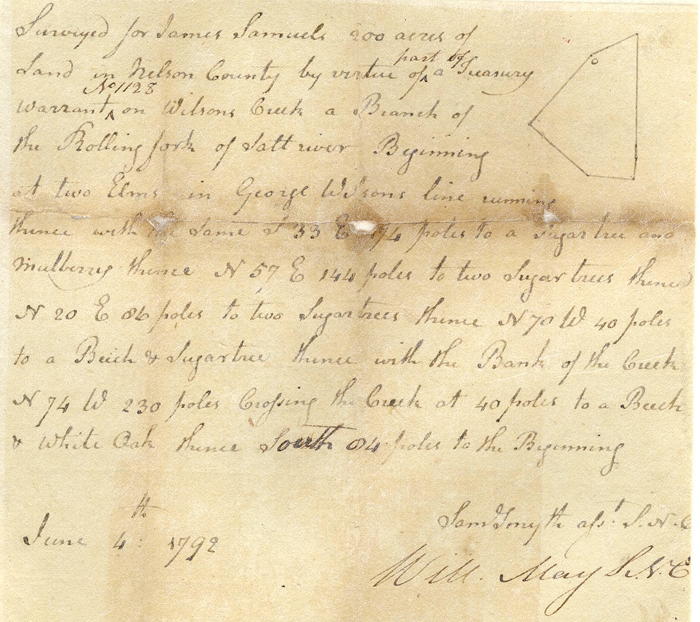 Surveyed for James Samuels 200 acres of
part of
Land in Nelson County by virtue of ^ a Treasury
No 1128
warrant ^ on Wilsons Creek a Branch of
the Rolling fork of Salt river Beginning
at two Elms in George Wilsons line running
thence with the same S 33 E 194 poles to a Sugartree and
mulberry thence N 57 E 144 poles to two Sugartrees thence
N 20 E 86 poles to two Sugartrees thence N 70 W 40 poles
to a Beich & Sugartree thence with the Bank of the Creek
N 74 W 230 poles Crossing the Creek at 40 poles to a Beech
& White Oak thence South 84 poles to the Beginning
June 4th 1792
Saml Smyth asst. S. N. C
Will. May S. N. C